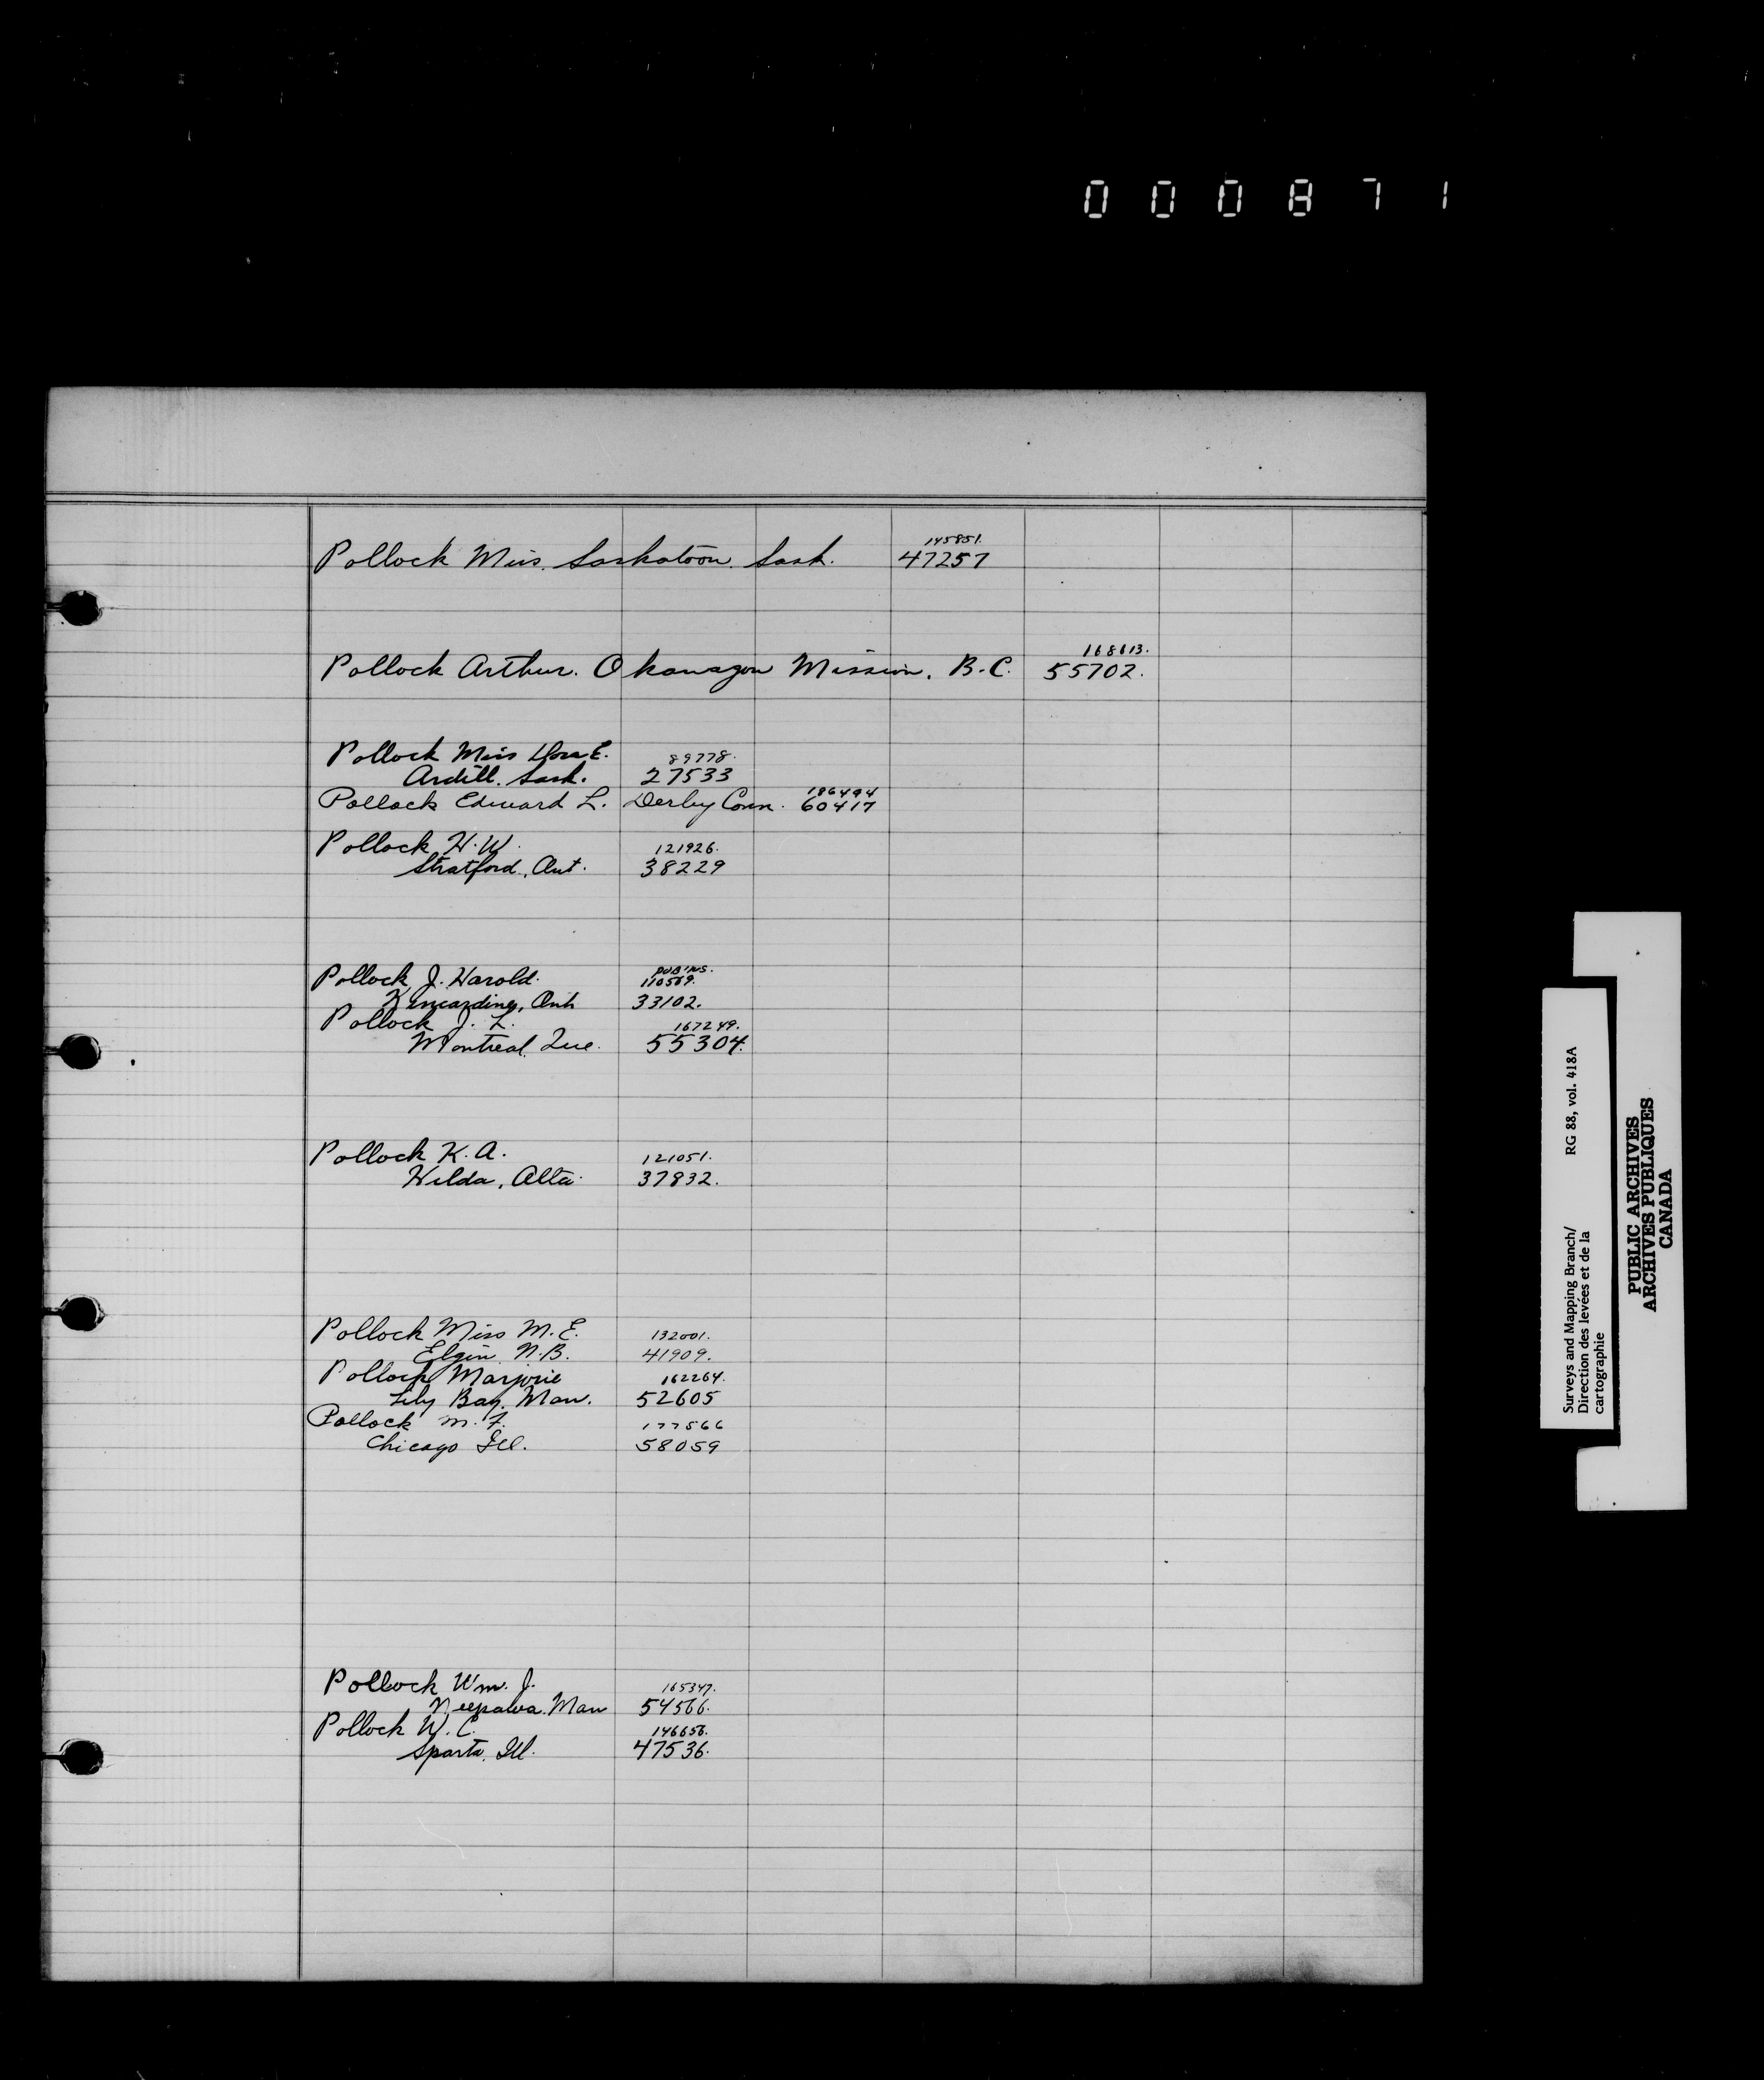 000871
145851.
Pollock Miss. Saskatoon. Sask. 47257
168613.
Pollock Arthur. Okanagon Mission. B.C. 55702.
Pollock Miss E. 89778.
Ardill. Sask. 27533
186494
Pollock Edward L. Derby Conn. 60417
Pollock H.W. 121926.
Stratford, Ont. 38229
PUB'NS.
Pollock J. Harold. 110569.
Kincardine, Ont 33102.
Pollock J. L. 167249.
Montreal. Que. 55304.
Pollock K. A. 121051.
Hilda, Alta. 37832.
Pollock Miss M. E. 132001.
Elgin N.B. 41909.
Pollock Marjorie 162264.
Lily Bay. Man. 52605
Pollock M. F. 177566
Chicago Ill. 58059
Pollock Wm. J. 165347.
Neepawa. Man 54566.
Pollock W. C. 146656.
Sparta. Ill. 47536.
Surveys and Mapping Branch/ RG 88, vol. 418A
Direction des levées et de la
cartographie
PUBLIC ARCHIVES
ARCHIVES PUBLIQUES
CANADA